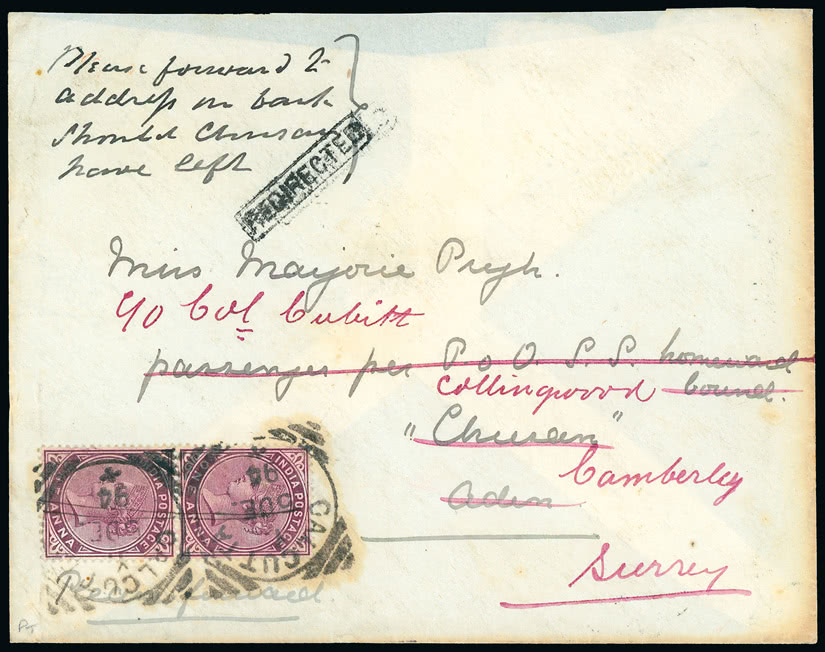 Please forward to
address on back
should Chusan
have left
REDIRECTED
Miss Marjorie Pugh.
c/o Col Cubitt
passenger per P & O. S. S. homeward
Collingwood bound.
"Chusan"
Camberley
Aden
Surrey
INDIA POSTAGE
ONE ANNA
INDIA POSTAGE
ONE ANNA
CALCUTTA
94
CALCUTTA
94
Please forward.